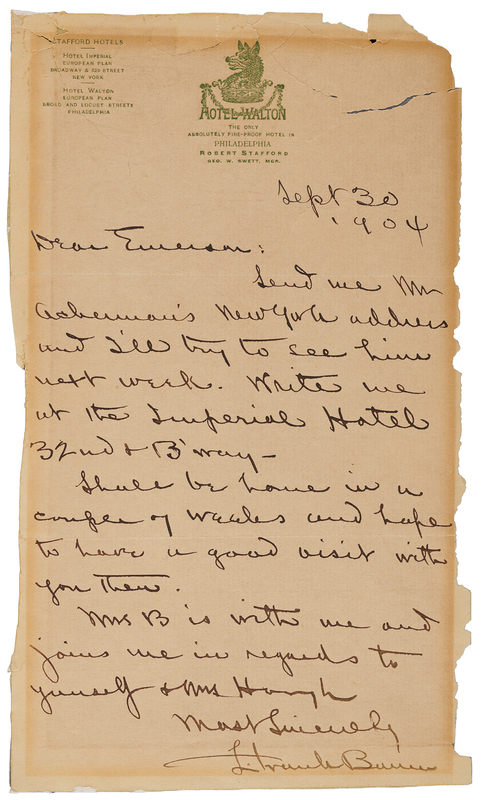 STAFFORD HOTELS
HOTEL IMPERIAL
EUROPEAN PLAN
BROADWAY & 32D STREET
NEW YORK
HOTEL WALTON
EUROPEAN PLAN
BROAD AND LOCUST STREETS
PHILADELPHIA
HOTEL WALTON
THE ONLY
ABSOLUTELY FIRE-PROOF HOTEL IN
PHILADELPHIA
ROBERT STAFFORD
GEO. W. SWETT, MGR.
Sept 30
1904
Dear Emerson:
Send me Mr
Ackerman's New York address
and I'll try to see him
next week. Write me
at the Imperial Hotel
32nd & B'way—
Shall be home in a
couple of weeks and hope
to have a good visit with
you then.
Mrs B is with me and
joins me in regards to
yourself & Mrs Hough
Most Sincerely,
L. Frank Baum